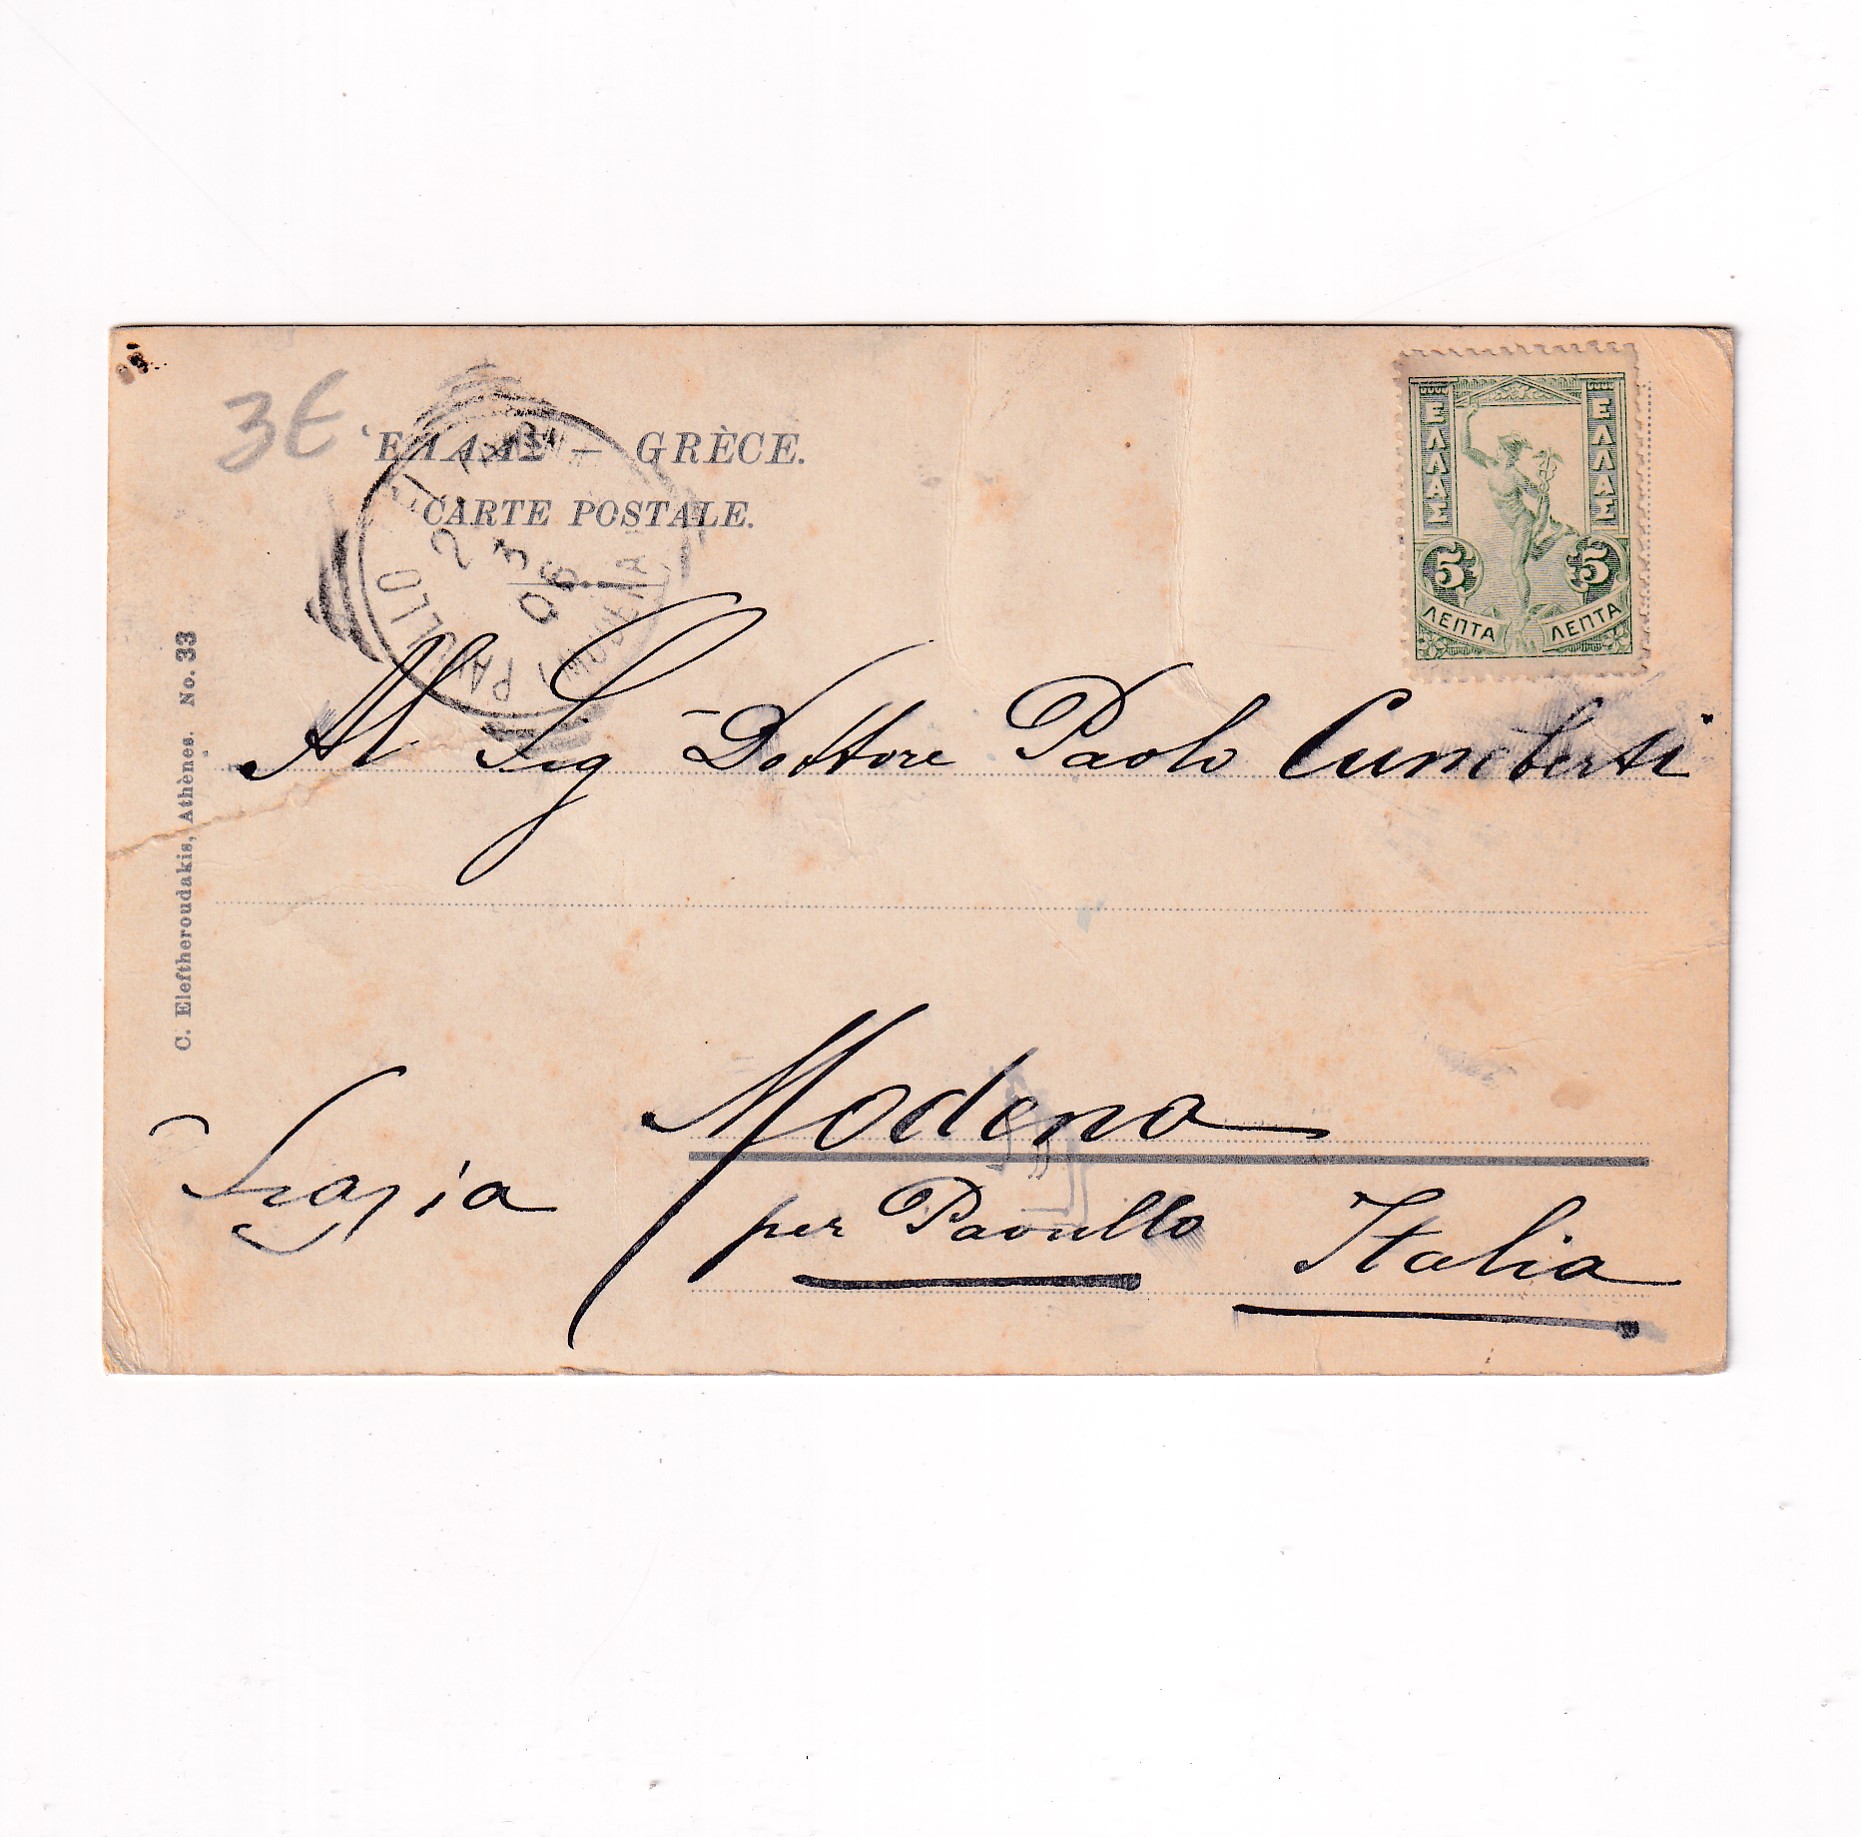 3€
ἙΛΛΑΣ — GRÈCE.
CARTE POSTALE.
PAVULLO
(MODENA)
2 3 06
ΕΛΛΑΣ
ΕΛΛΑΣ
5 5
ΛΕΠΤΑ ΛΕΠΤΑ
C. Eleftheroudakis, Athènes. No. 33
Al Sig Dottore Paolo Cuniberti
Modena
per Pavullo Italia